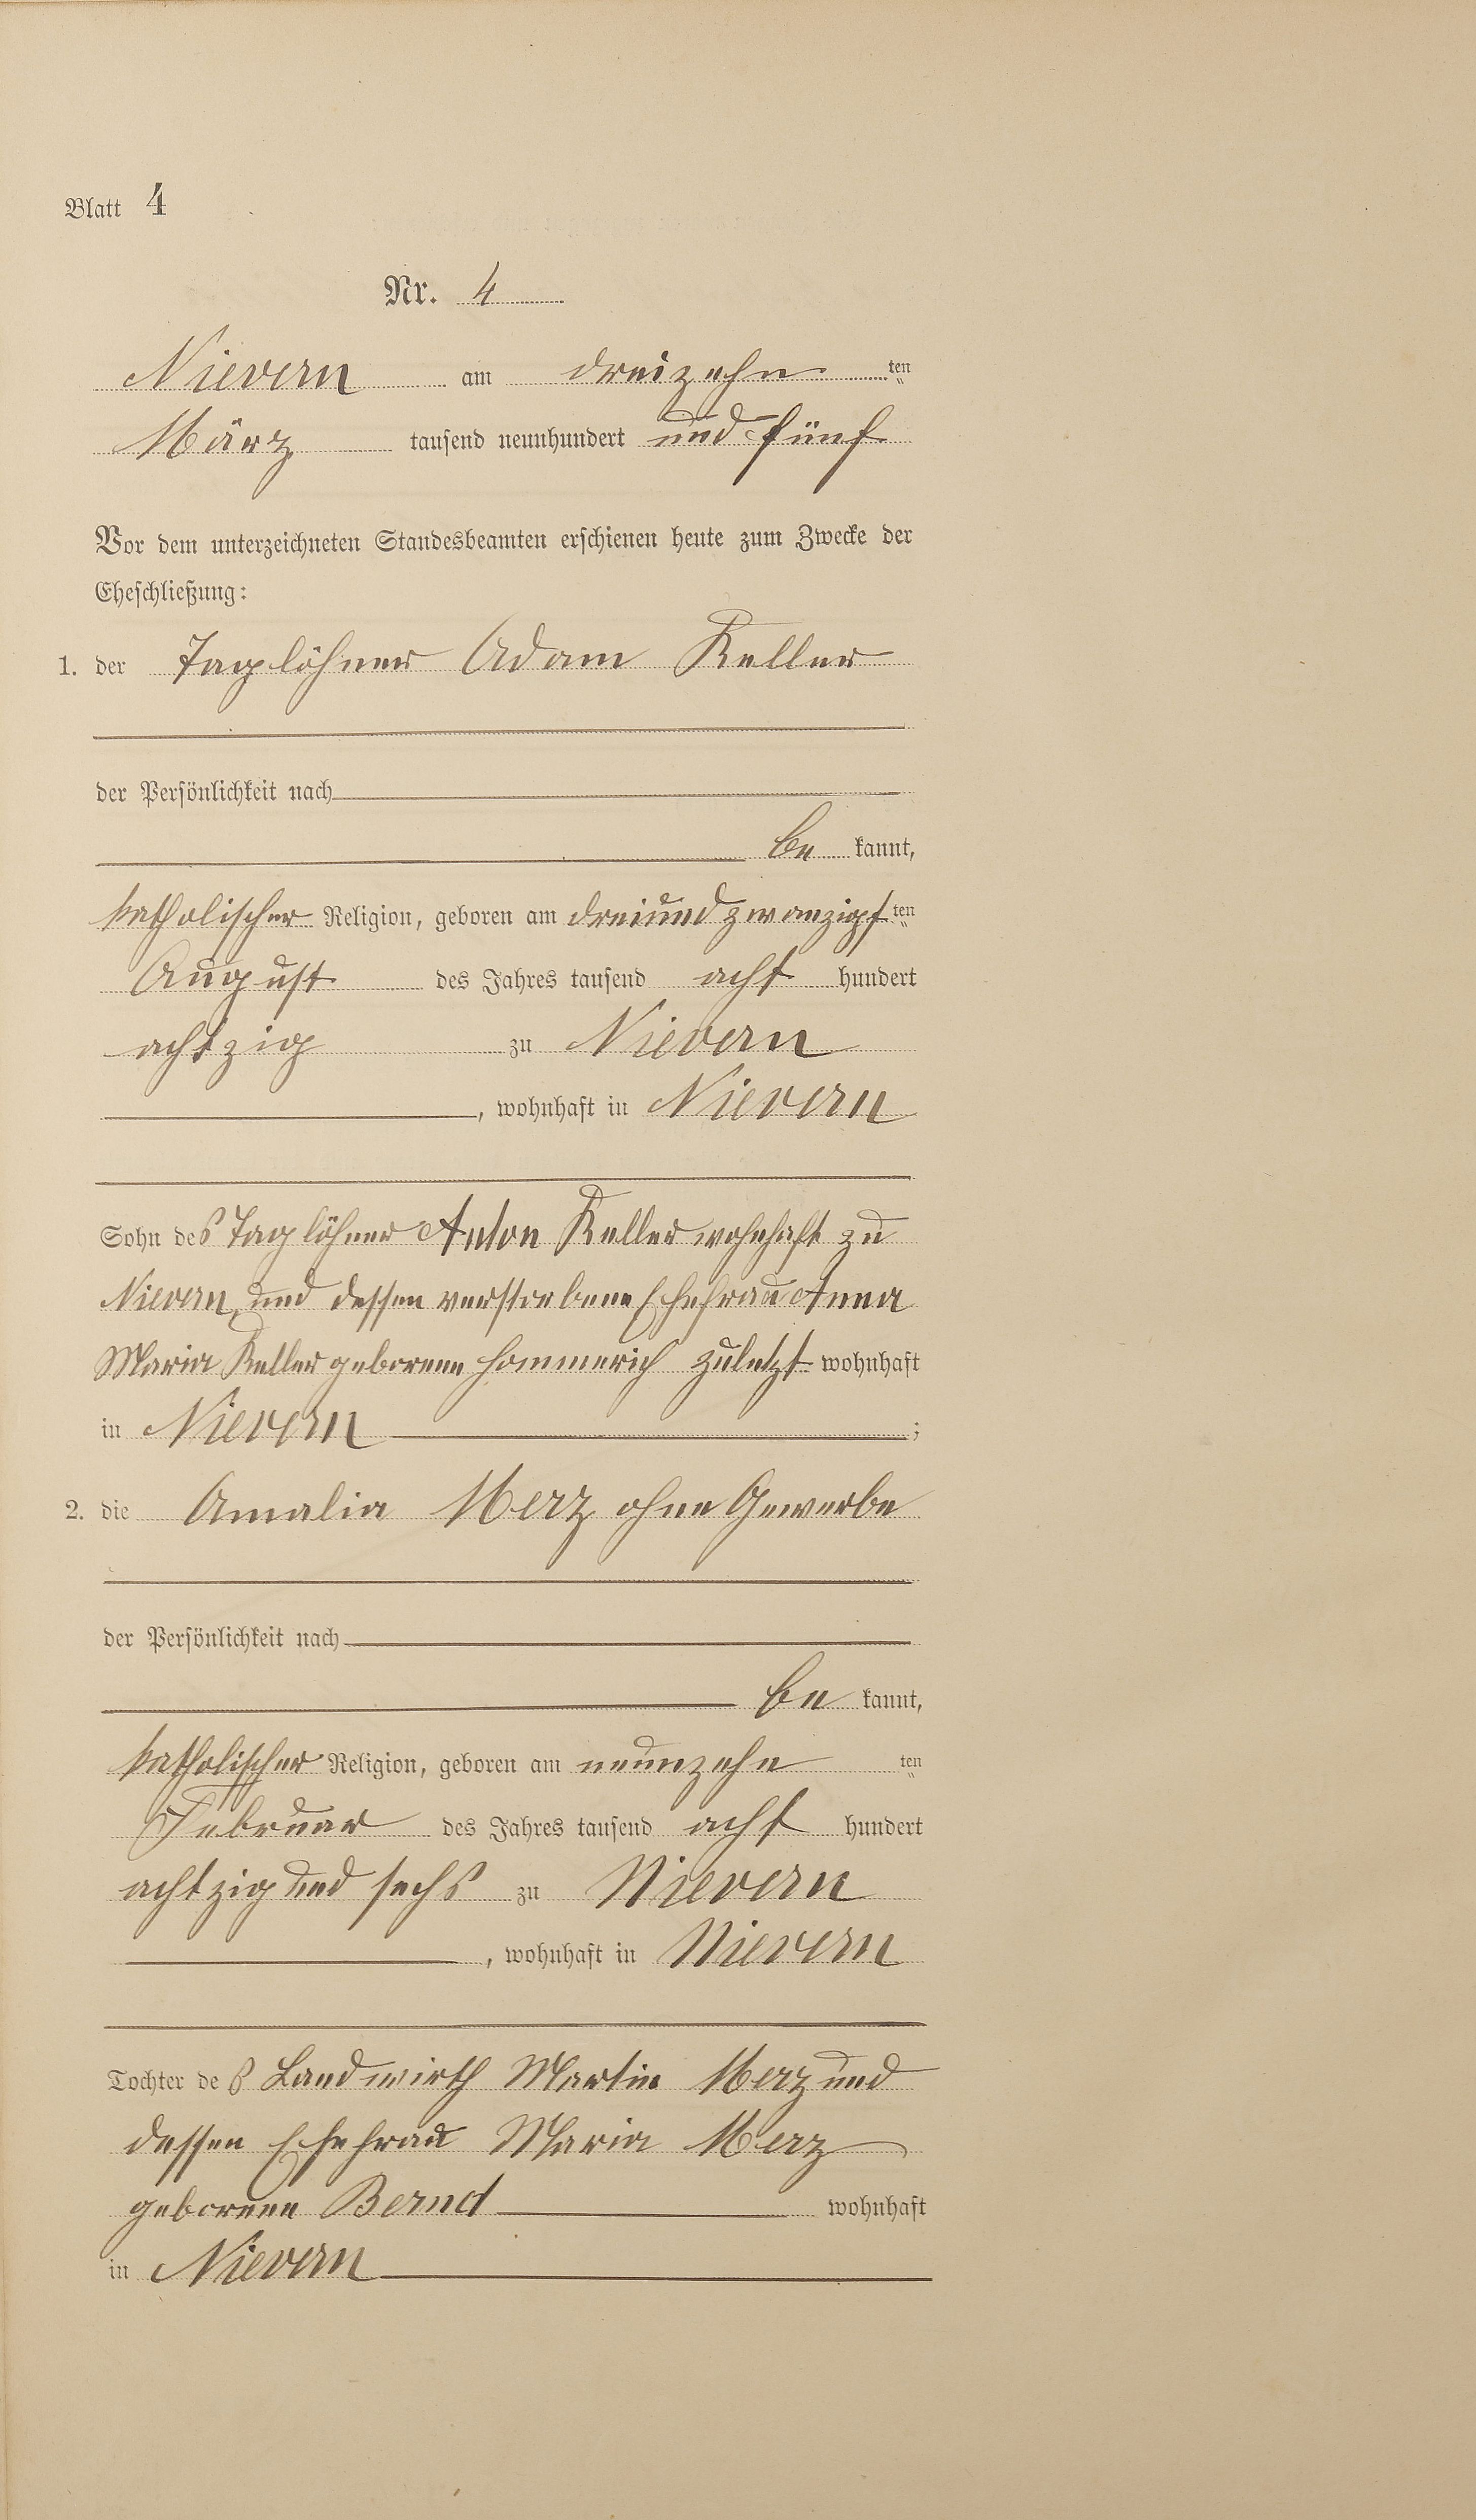 Blatt 4
Nr. 4
Nievern am dreizehn ten
März tausend neunhundert und fünf
Vor dem unterzeichneten Standesbeamten erschienen heute zum Zwecke der
Eheschließung:
1. der Taglöhner Adam Keller
der Persönlichkeit nach
be kannt,
katholischer Religion, geboren am dreiundzwanzigsten
August des Jahres tausend acht hundert
achtzig zu Nievern
, wohnhaft in Nievern
Sohn des Taglöhner Anton Keller wohnhaft zu
Nievern, und dessen verstorbene Ehefrau Anna
Maria Keller geborene Hommerich zuletzt wohnhaft
in Nievern ;
2. die Amalia Merz ohne Gewerbe
der Persönlichkeit nach
be kannt,
katholischer Religion, geboren am neunzehn ten
Februar des Jahres tausend acht hundert
achtzig und sechs zu Nievern
, wohnhaft in Nievern
Tochter des Landwirth Martin Merz und
dessen Ehefrau Maria Merz
geborene Bernd wohnhaft
in Nievern